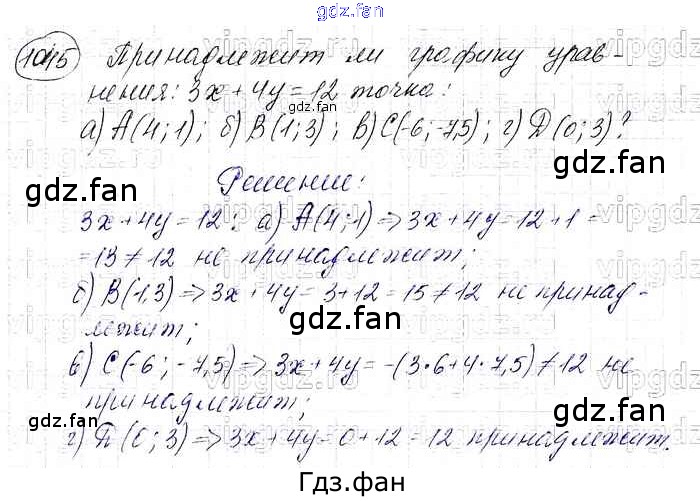 gdz.fan
1045 Принадлежит ли графику урав-
нения: 3x + 4y = 12 точка:
а) A(4; 1); б) B(1; 3); в) C(-6; -7,5); г) D(0; 3)?
gdz.fan
Решение:
gdz.fan
3x + 4y = 12; а) A(4; 1) => 3x + 4y = 12 + 1 =
= 13 ≠ 12 не принадлежит;
б) B(1,3) => 3x + 4y = 3 + 12 = 15 ≠ 12 не принад-
лежит;
в) C(-6; -7,5) => 3x + 4y = -(3·6 + 4·7,5) ≠ 12 не
принадлежит;
gdz.fan
gdz.fan
г) D(0; 3) => 3x + 4y = 0 + 12 = 12 принадлежит.
Гдз.фан